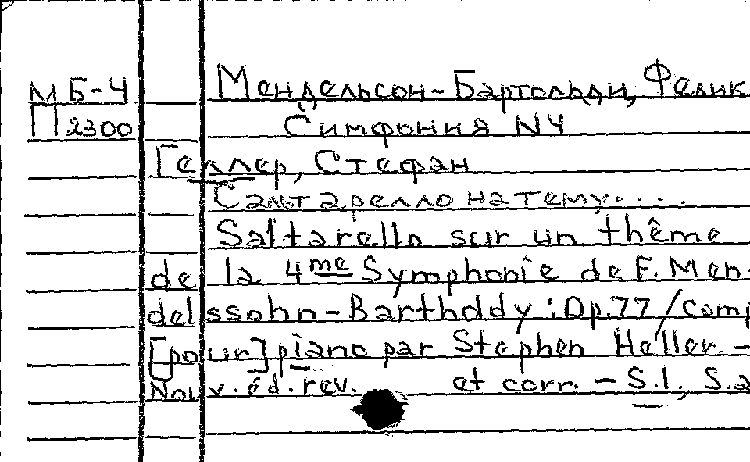 МБ-4 Мендельсон-Бартольди, Феликс
П2300 Симфония N4
Геллер, Стефан
Сальтарелло на тему....
Saltarello sur un thême
de la 4me Symphonie de F. Men-
delssohn-Bartholdy : Op.77 / comp
[pour] piano par Stephen Heller. -
Nouv. éd. rev. et corr. - S.l., S.a